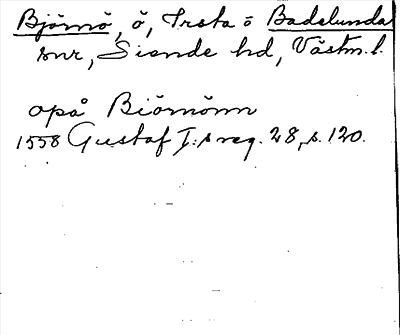 Björnö, ö, Irsta o Badelunda
snr, Siende hd, Västm.l.
opå Biörnönn
1558 Gustaf I:s reg. 28, s. 120.